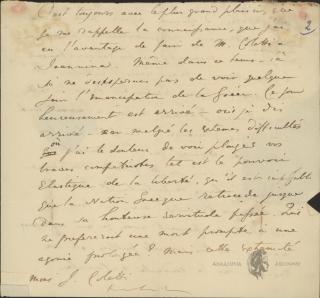 C'est toujours avec le plus grand plaisir, que
je me rappelle la connaissance, que j'ai
eu l'avantage de faire de M. Coletti à
Joannina. Même dans ce tems-là
je ne désesperois pas de voir quelque
jour l'émancipation de la Grèce. Ce jour
heureusement est arrivé - oui je dis
arrivé - car malgré les extrêmes difficultés
où j'ai la douleur de voir plongés vos
braves compatriotes, tel est le pouvoir
élastique de la liberté, qu'il est impossible
que la Nation Grecque retrocede jusque
dans sa honteuse servitude passée. Qui
ne prefereroit une mort prompte à une
agonie prolongée? Mais cette extremité
mons. J. Coletti
2
ΑΚΑΔΗΜΙΑ ΑΘΗΝΩΝ